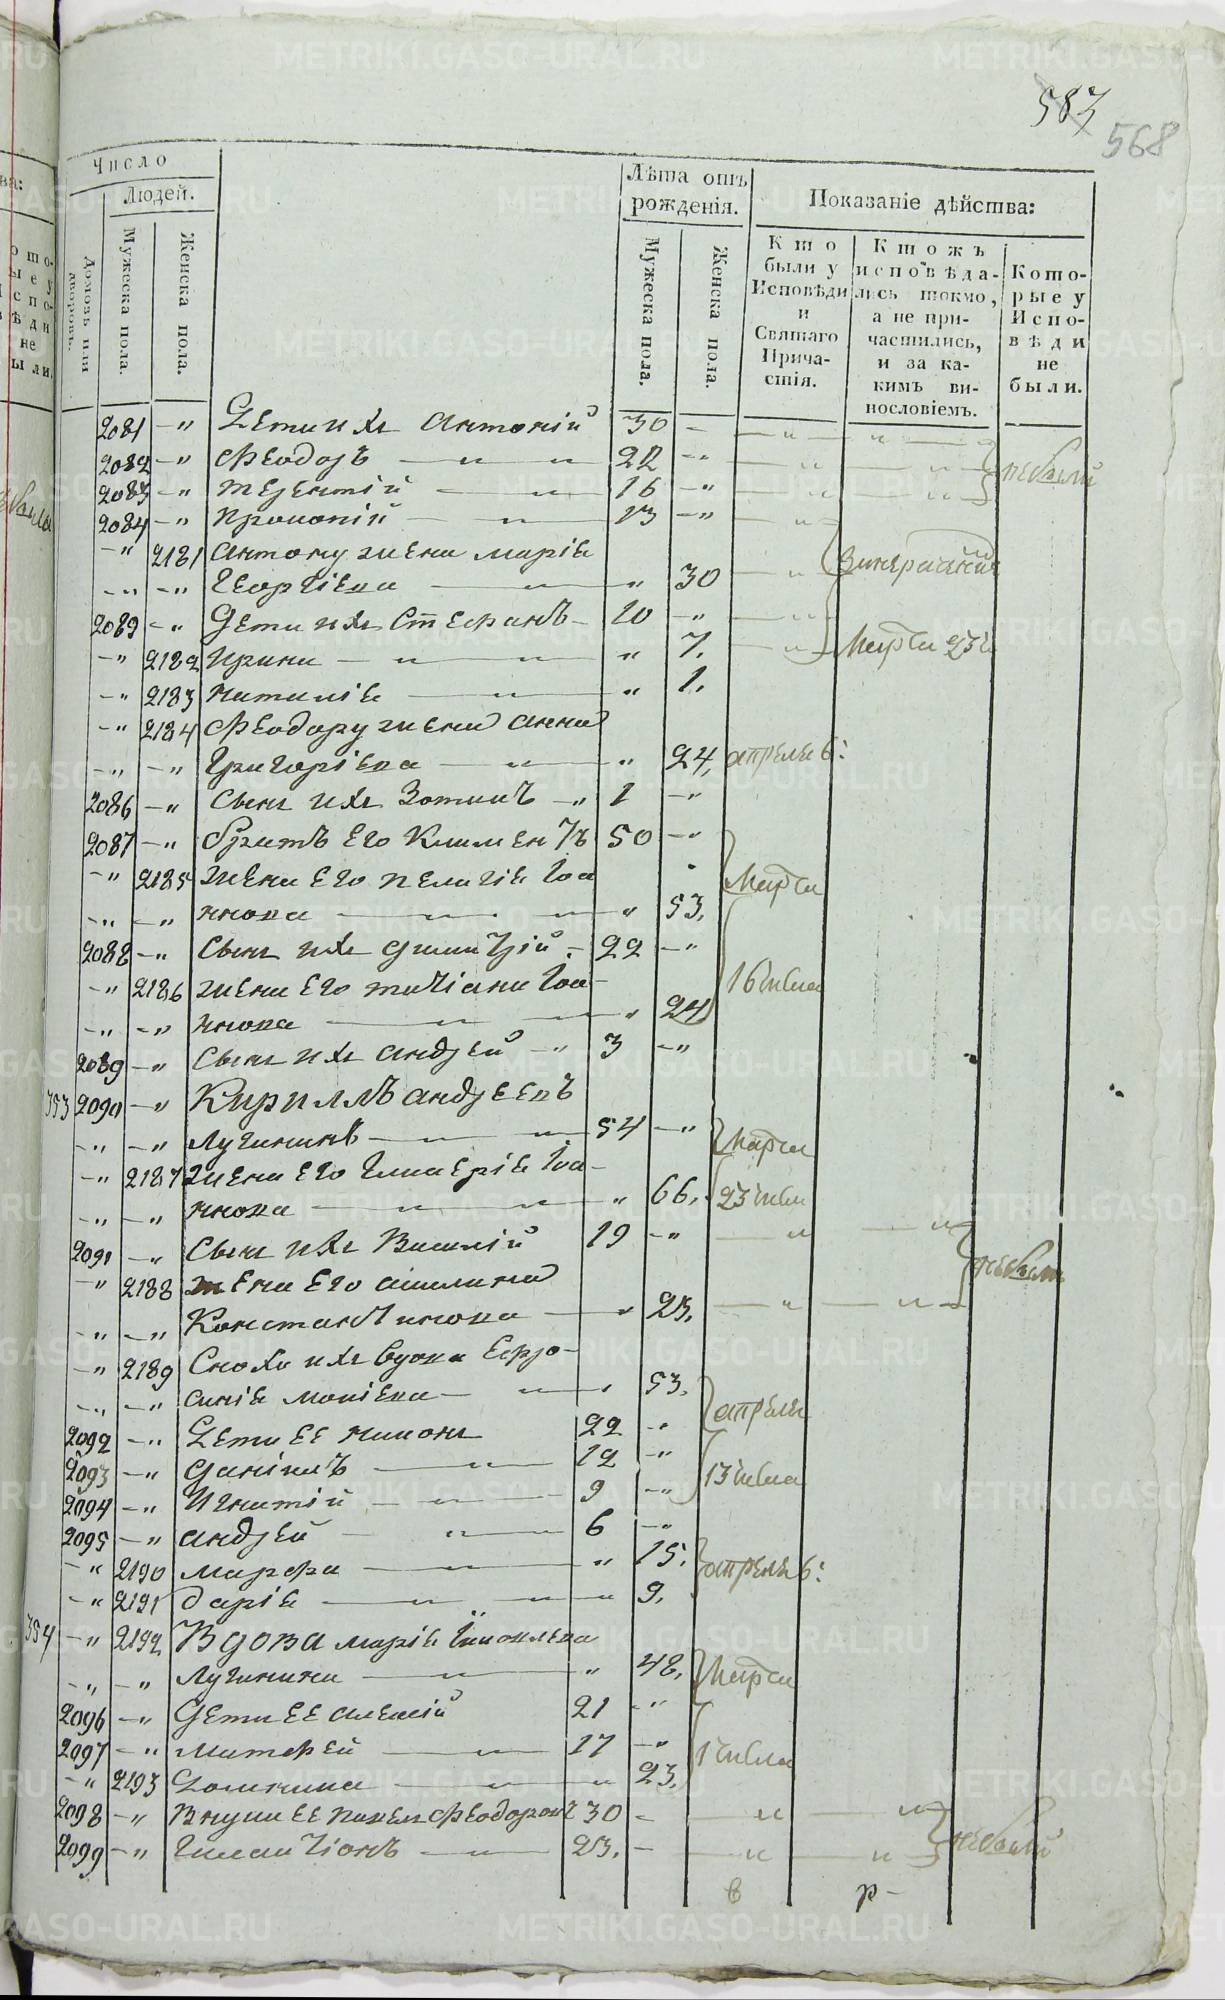 583
568
Число
Людей.
Домовъ или дворовъ.
Мужеска пола.
Женска пола.
Лѣта отъ рожденія.
Мужеска пола.
Женска пола.
Показаніе дѣйства:
Кто были у Исповѣди и Святаго Причастія.
Ктожъ исповѣдались токмо, а не причастились, и за какимъ винословіемъ.
Которые у Исповѣди не были.
2081 -" Дети ихъ Антоній 30 -
2082 -" Феодоръ 22 -" небыли
2083 -" Терентій 16 -"
2084 -" Прокопій 13 -"
-" 2181 Антону жена Марія
-" -" Георгіева " 30
2089 -" Дети ихъ Стефанъ 10 -"
-" 2182 Ирина " 7. Марта 23
-" 2183 Наталія " 1.
-" 2184 Феодору жена Анна
-" -" Григоріева " 24, апреля 6:
2086 -" Сынъ ихъ Зотикъ -" 1 -"
2087 -" Братъ Его Климентъ 50 -"
-" 2185 Жена Его Пелагія Іоа Марта
-" -" ннова " 53.
2088 -" Сынъ ихъ Димитрій 22 -"
-" 2186 жена Его Татіана Іоа- 16 числа
-" -" ннова " 24
2089 -" Сынъ ихъ Андрей -" 3 -"
353 2090 -" Кириллъ Андреевъ
-" -" Лугининъ 54 -" Марта
-" 2187 Жена Его Гликерія Іоа-
-" -" ннова " 66. 23 числа
2091 -" Сынъ ихъ Василій 19 -"
-" 2188 Жена Его Акилина небыли
-" -" Константинова " 25.
-" 2189 Сноха ихъ вдова Ефро-
-" -" синія Мокіева 53. апреля
2092 -" Дети ЕЕ Никонъ 22 -"
2093 -" Даніилъ 12 -" 13 числа
2094 -" Игнатій 9 -"
2095 -" Андрей 6 -"
-" 2190 Марфа " 15. апреля 6:
-" 2191 Дарія 9.
354 -" 2192 Вдова Марія
-" -" Лугинина " 48. Марта
2096 -" Дети ЕЕ Алексій 21 -"
2097 -" Матфей 17 -" 1 числа
-" 2193 Домникіа 23.
2098 -" Внуки ЕЕ Павелъ Феодоровъ 30 - небыли
2099 -" Галактіонъ 23. -
в р-
METRIKI.GASO-URAL.RU